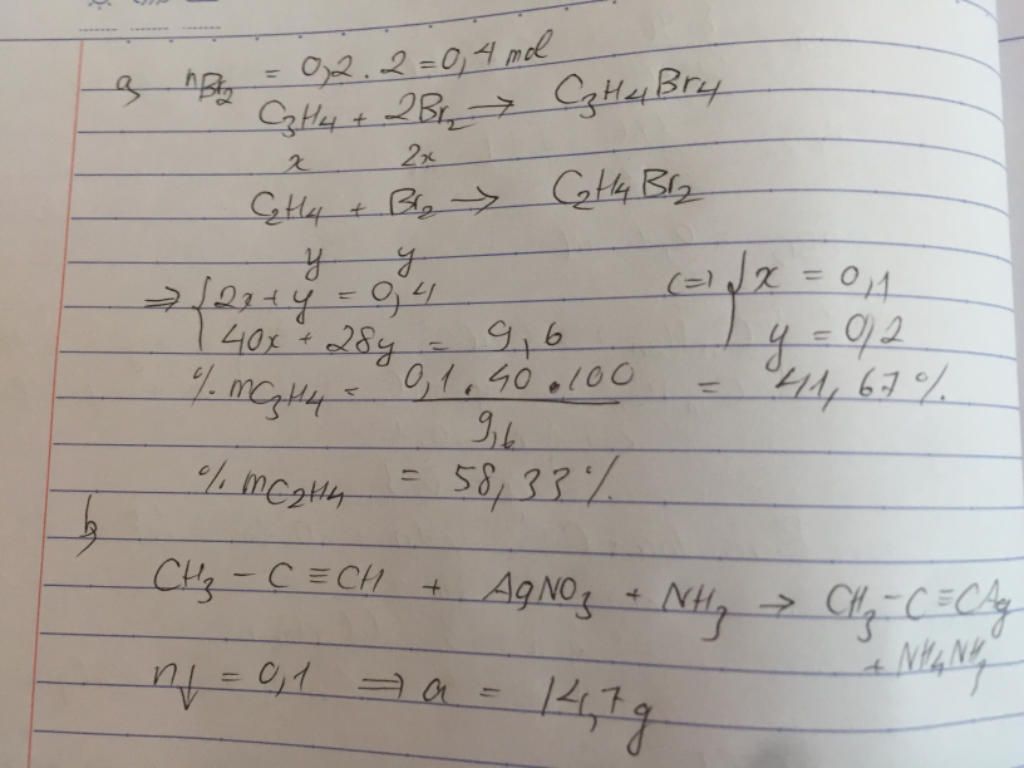 a, nBr₂ = 0,2 . 2 = 0,4 mol
C₃H₄ + 2Br₂ → C₃H₄Br₄
x 2x
C₂H₄ + Br₂ → C₂H₄Br₂
y y
⇒ { 2x + y = 0,4 (=) { x = 0,1
40x + 28y = 9,6 y = 0,2
% mC₃H₄ = 0,1 . 40 . 100 = 41,67 %
9,6
% mC₂H₄ = 58,33 %
b,
CH₃ – C ≡ CH + AgNO₃ + NH₃ → CH₃ – C ≡ CAg
+ NH₄NH₃
n↓ = 0,1 ⇒ a = 14,7 g